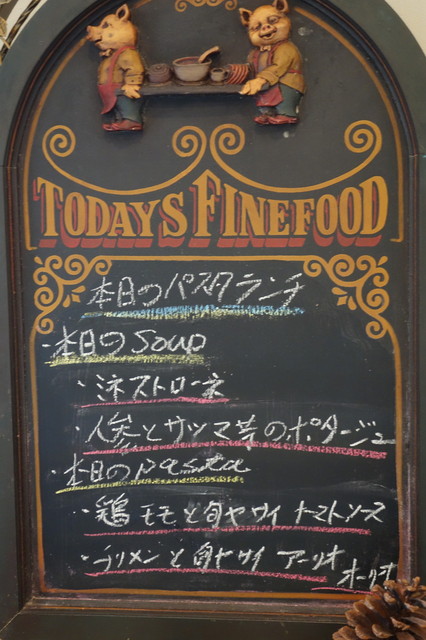 TODAYS FINEFOOD
本日のパスタランチ
・本日のSoup
・ミネストローネ
・人参とサツマ芋のポタージュ
・本日のpasta
・鶏モモと旬ヤサイ トマトソース
・チリメンと旬ヤサイ アーリオ
オーリオ